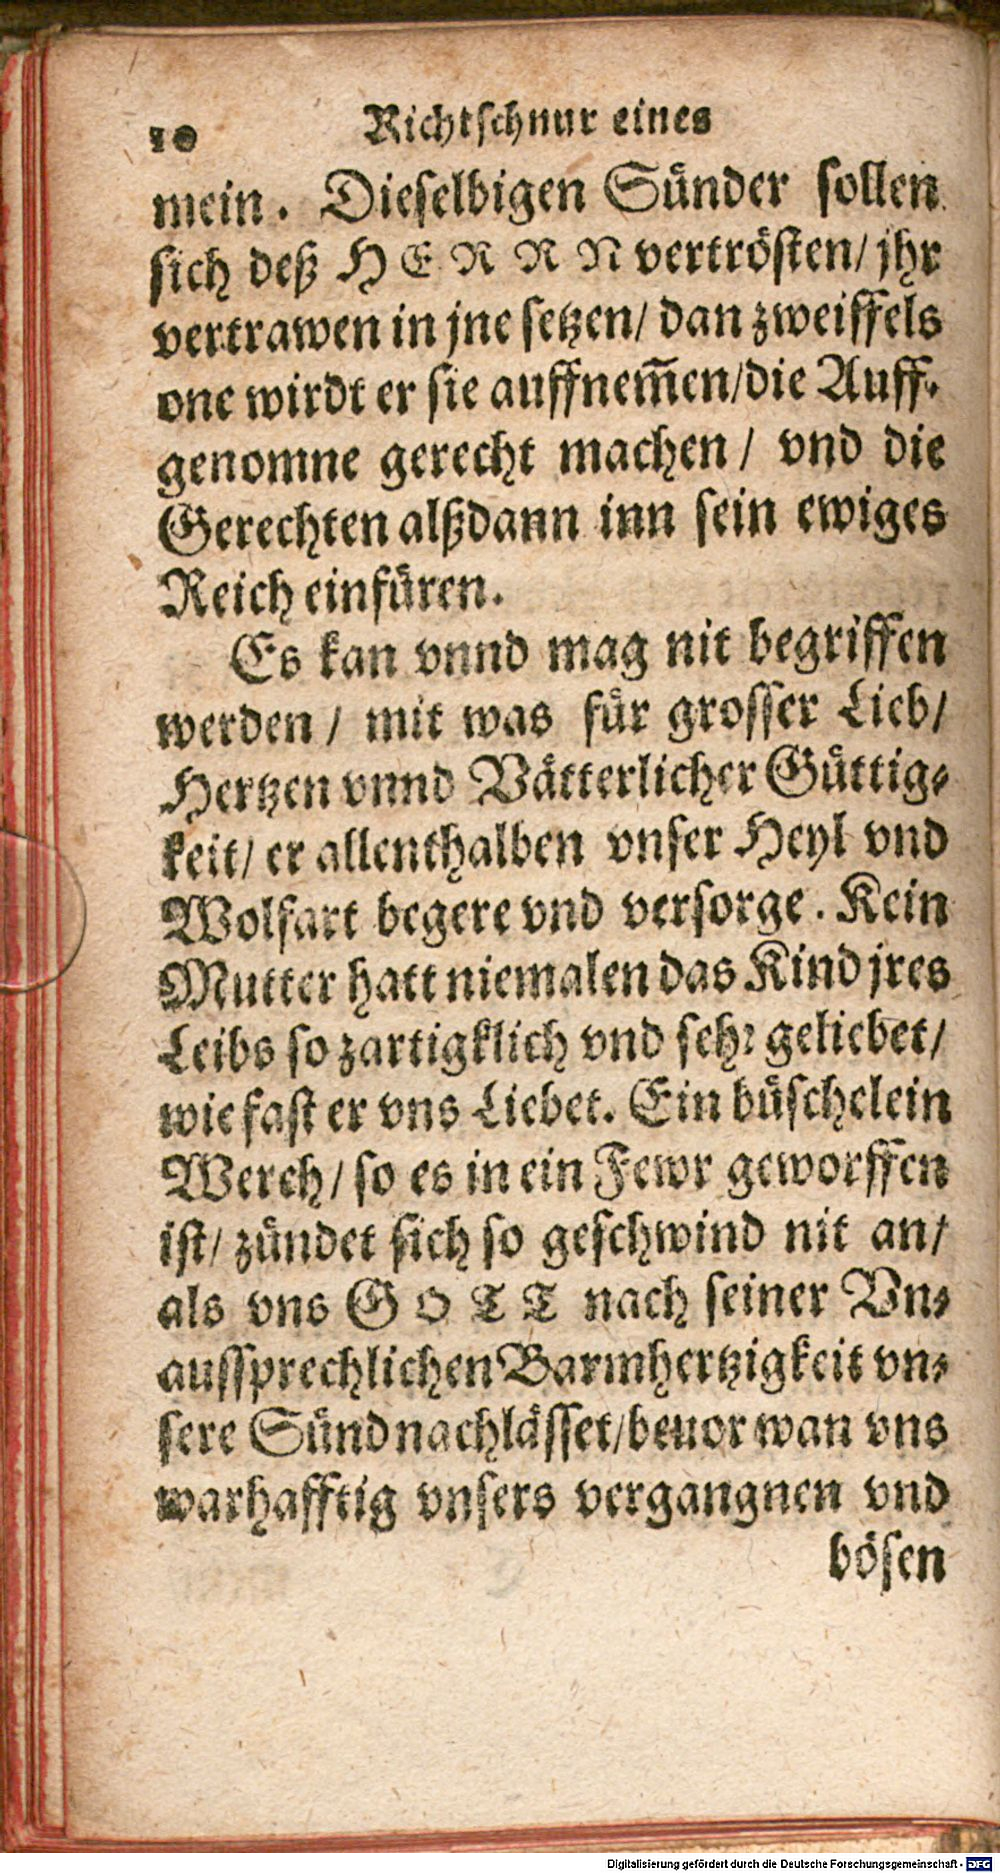 10 Richtschnur eines
mein. Dieselbigen Sünder sollen
sich deß HERRN vertrösten/ jhr
vertrawen in jne setzen/ dan zweiffels
one wirdt er sie auffnem̃en/die Auff-
genomne gerecht machen/ vnd die
Gerechten alßdann inn sein ewiges
Reich einfüren.
Es kan vnnd mag nit begriffen
werden/ mit was für grosser Lieb/
Hertzen vnnd Vätterlicher Güttig-
keit/ er allenthalben vnser Heyl vnd
Wolfart begere vnd versorge. Kein
Mutter hatt niemalen das Kind jres
Leibs so zartigklich vnd sehr geliebet/
wie fast er vns Liebet. Ein büschelein
Werch/ so es in ein Fewr geworffen
ist/ zündet sich so geschwind nit an/
als vns GOTT nach seiner Vn-
aussprechlichen Barmhertzigkeit vn-
sere Sünd nachlässet/beuor wan vns
warhafftig vnsers vergangnen vnd
bösen
Digitalisierung gefördert durch die Deutsche Forschungsgemeinschaft - DFG